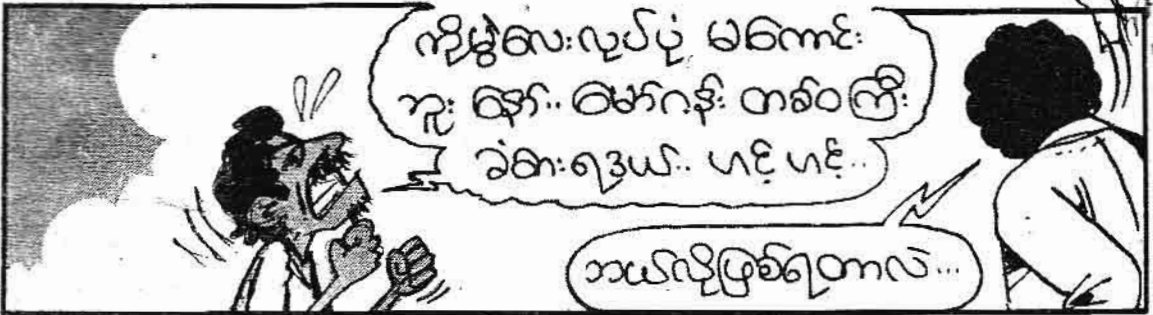 ကိုမွဲလေးလုပ်ပုံ မကောင်း
ဘူး နော်.. မော်ဂန်း တစ်ဝကြီး
ခံစားရဒယ်.. ဟင့် ဟင့်..
ဘယ်လိုဖြစ်ရတာလဲ...